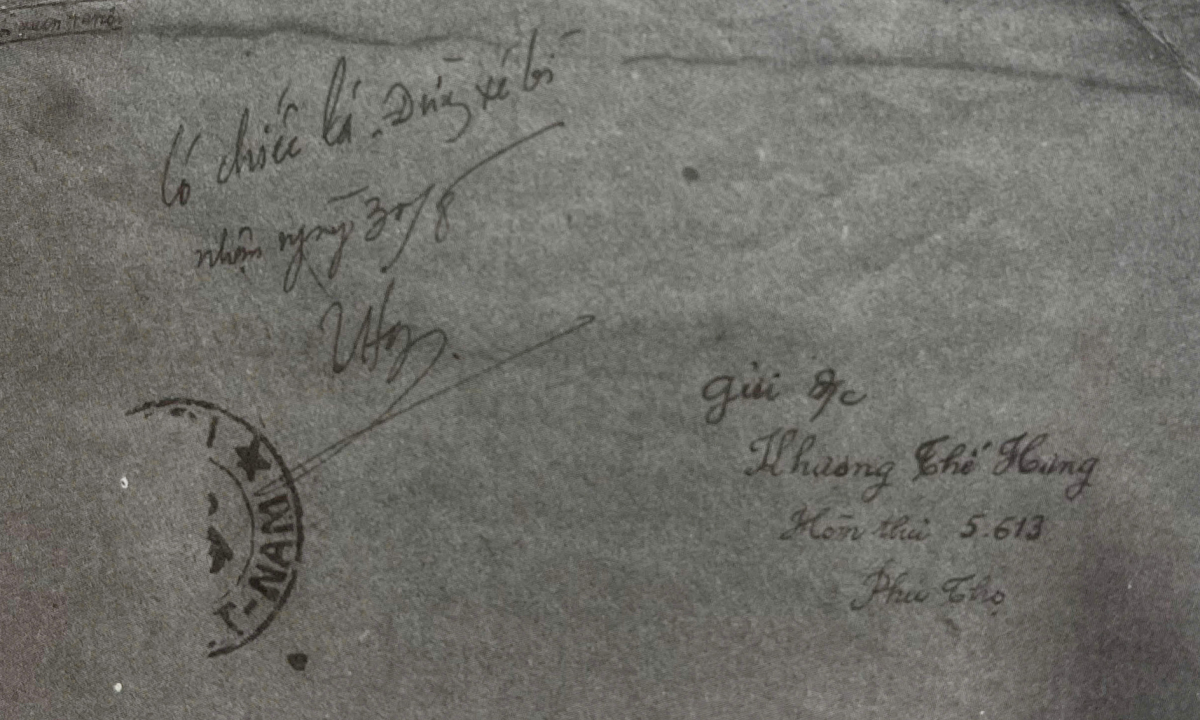 Có chiếc lá. Đừng xé bì
nhận ngày 30/8
gửi đ/c
Khương Thế Hưng
Hòm thư 5.613
Phú Thọ
T-NAM